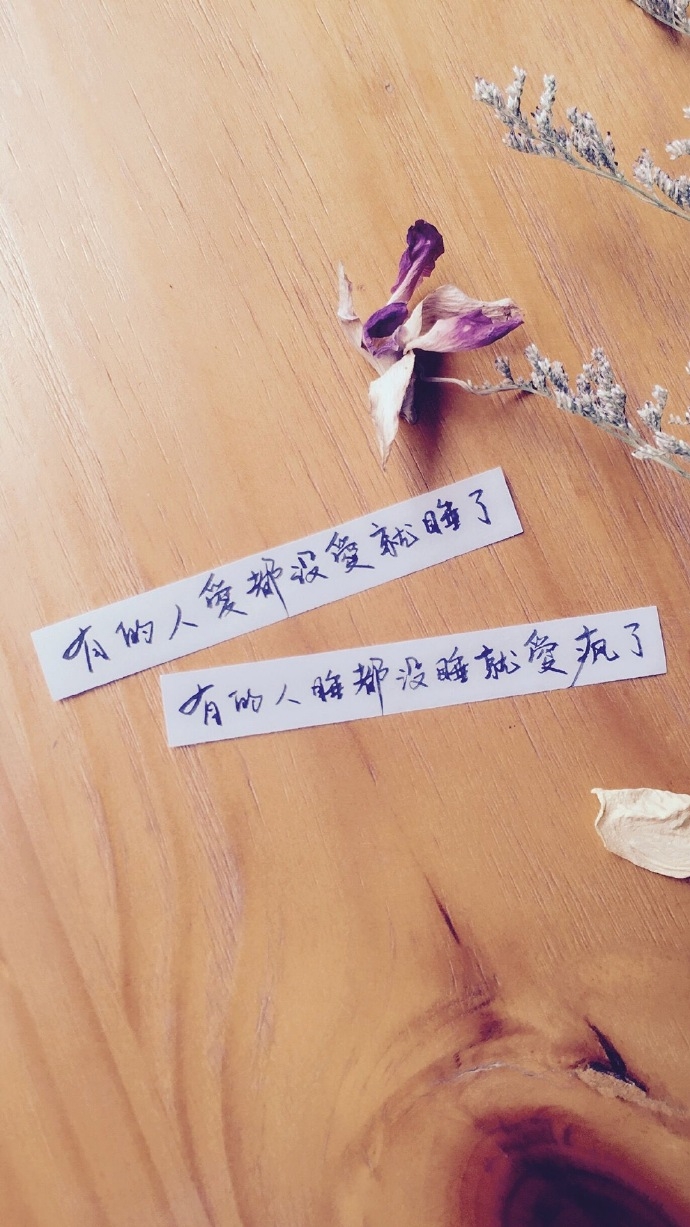 有的人愛都没愛就睡了
有的人睡都没睡就愛疯了